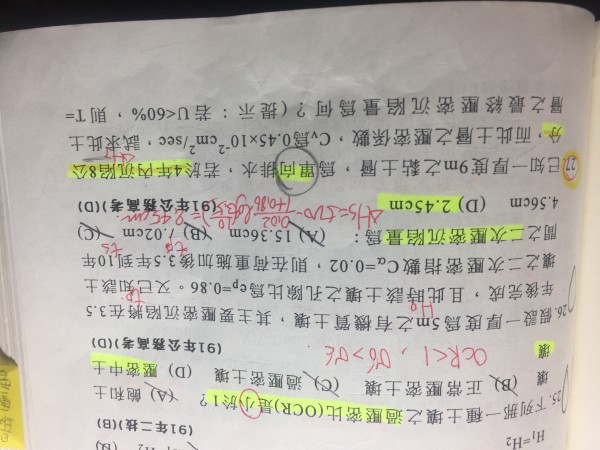 H₁=H₂
(91年二技)(B)
25. 下列那一種土壤之過壓密比(OCR)是小於1? (A) 飽和土
壤 (B) 正常壓密土壤 (C) 過壓密土壤 (D) 壓密中土
壤
(91年公務高考)(D)
OCR<1,
26. 假設一厚度為5m之有機質土壤，其主要壓密沉陷將在3.5
H₀
年後完成，且此時該土壤之孔隙比為eₚ=0.86。又已知該土
tp
壤之二次壓密指數Cα=0.02，則在荷重施加後3.5年到10年
間之二次壓密沉陷量為： (A) 15.36cm (B) 7.02cm (C)
4.56cm (D) 2.45cm
(91年公務高考)(D)
27. 已知一厚度9m之黏土層，為單向排水，若於4年內沉陷8公
分，而此土層之壓密係數，Cᵥ為0.45×10⁻²cm²/sec，試求此土
層之最終壓密沉陷量為何？(提示：若U<60%，則T=